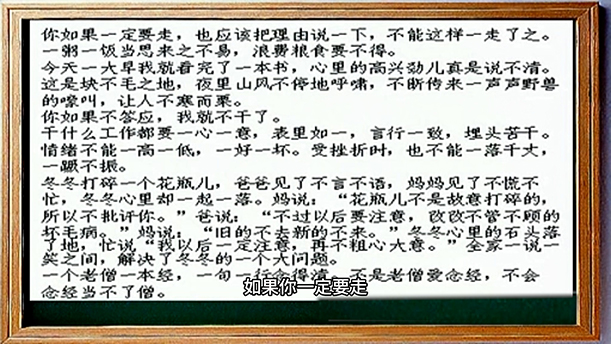 你如果一定要走，也应该把理由说一下，不能这样一走了之。
一粥一饭当思来之不易，浪费粮食要不得。
今天一大早我就看完了一本书，心里的高兴劲儿真是说不清。
这是块不毛之地，夜里山风不停地呼啸，不断传来一声声野兽
的嚎叫，让人不寒而栗。
你如果不答应，我就不干了。
干什么工作都要一心一意，表里如一，言行一致，埋头苦干。
情绪不能一高一低，一好一坏。受挫折时，也不能一落千丈，
一蹶不振。
冬冬打碎一个花瓶儿，爸爸见了不言不语，妈妈见了不慌不
忙，冬冬心里却一起一落。妈说：“花瓶儿不是故意打碎的，
所以不批评你。”爸说：“不过以后要注意，改改不管不顾的
坏毛病。”妈说：“旧的不去新的不来。”冬冬心里的石头落
了地，忙说“我以后一定注意，再不粗心大意。”全家一说一
笑之间，解决了冬冬的一个大问题。
一个老僧一本经，一句一行念得清，不是老僧爱念经，不会
念经当不了僧。
如果你一定要走